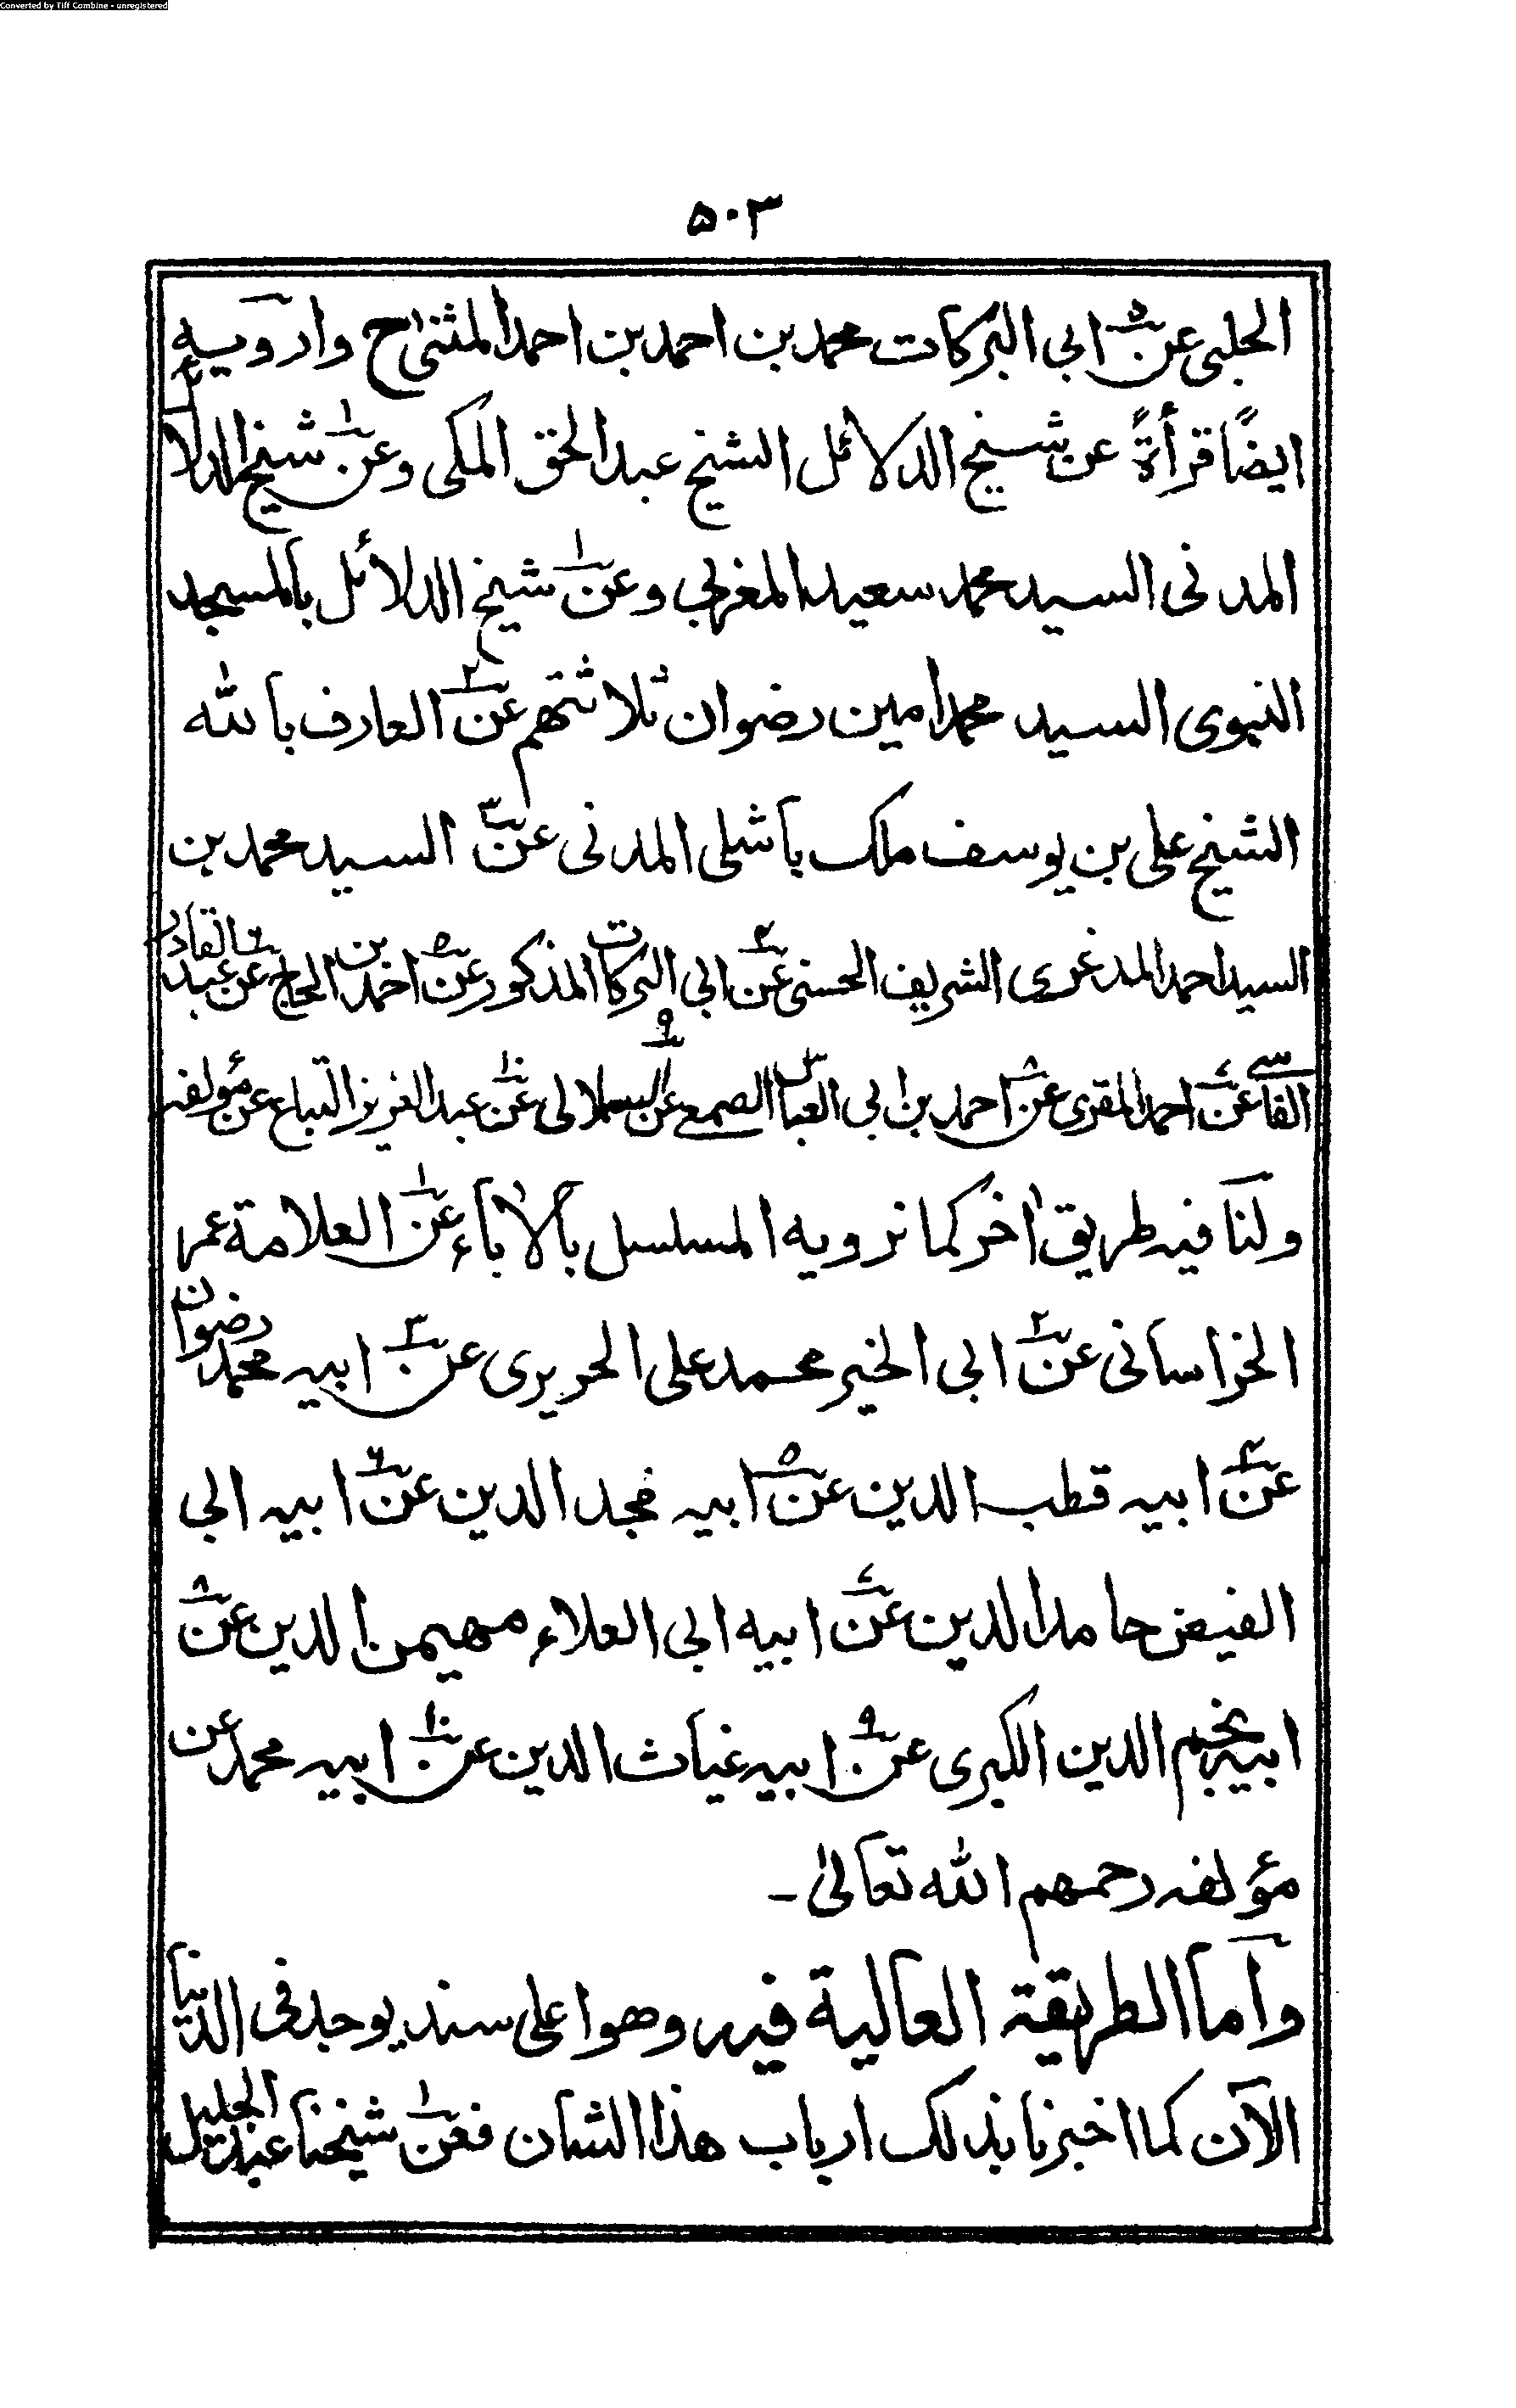 Converted by Tiff Combine - unregistered
۵۰۳
الجلبی عن ابی البرکات محمد بن احمد بن احمد المثنیٰ ح وارویه
ایضًا قرأةً عن شیخ الدلائل الشیخ عبد الحق المکی وعن شیخ الدلائل
المدنی السید محمد سعید المغربی وعن شیخ الدلائل بالمسجد
النبوی السید محمد امین رضوان ثلاثتهم عن العارف بالله
الشیخ علی بن یوسف ملک باشلی المدنی عن السید محمد بن
السید احمد المدغری الشریف الحسنی عن ابی البرکات المذکور عن احمد بن الحاج عن عبد القادر
الفاسی عن احمد المقری عن احمد بن ابی العباس الصمعی عن السملالی عن عبد العزیز التباع عن مؤلفه
ولنا فیه طریق اٰخر کما نرویه المسلسل بالاٰباء عن العلامة عمر
الخراسانی عن ابی الخیر محمد علی الحریری عن ابیه محمد رضوان
عن ابیه قطب الدین عن ابیه مجد الدین عن ابیه ابی
الفیض حامد الدین عن ابیه ابی العلاء مهیمن الدین عن
ابیه نجم الدین الکبری عن ابیه غیاث الدین عن ابیه محمد عن
مؤلفه رحمهم الله تعالیٰ ۔
وآما الطریقة العالیة فیه وهو اعلی سند یوجد فی الدنیا
الآن کما اخبرنا بذلک ارباب هذا الشان فعن شیخنا عبد الجلیل